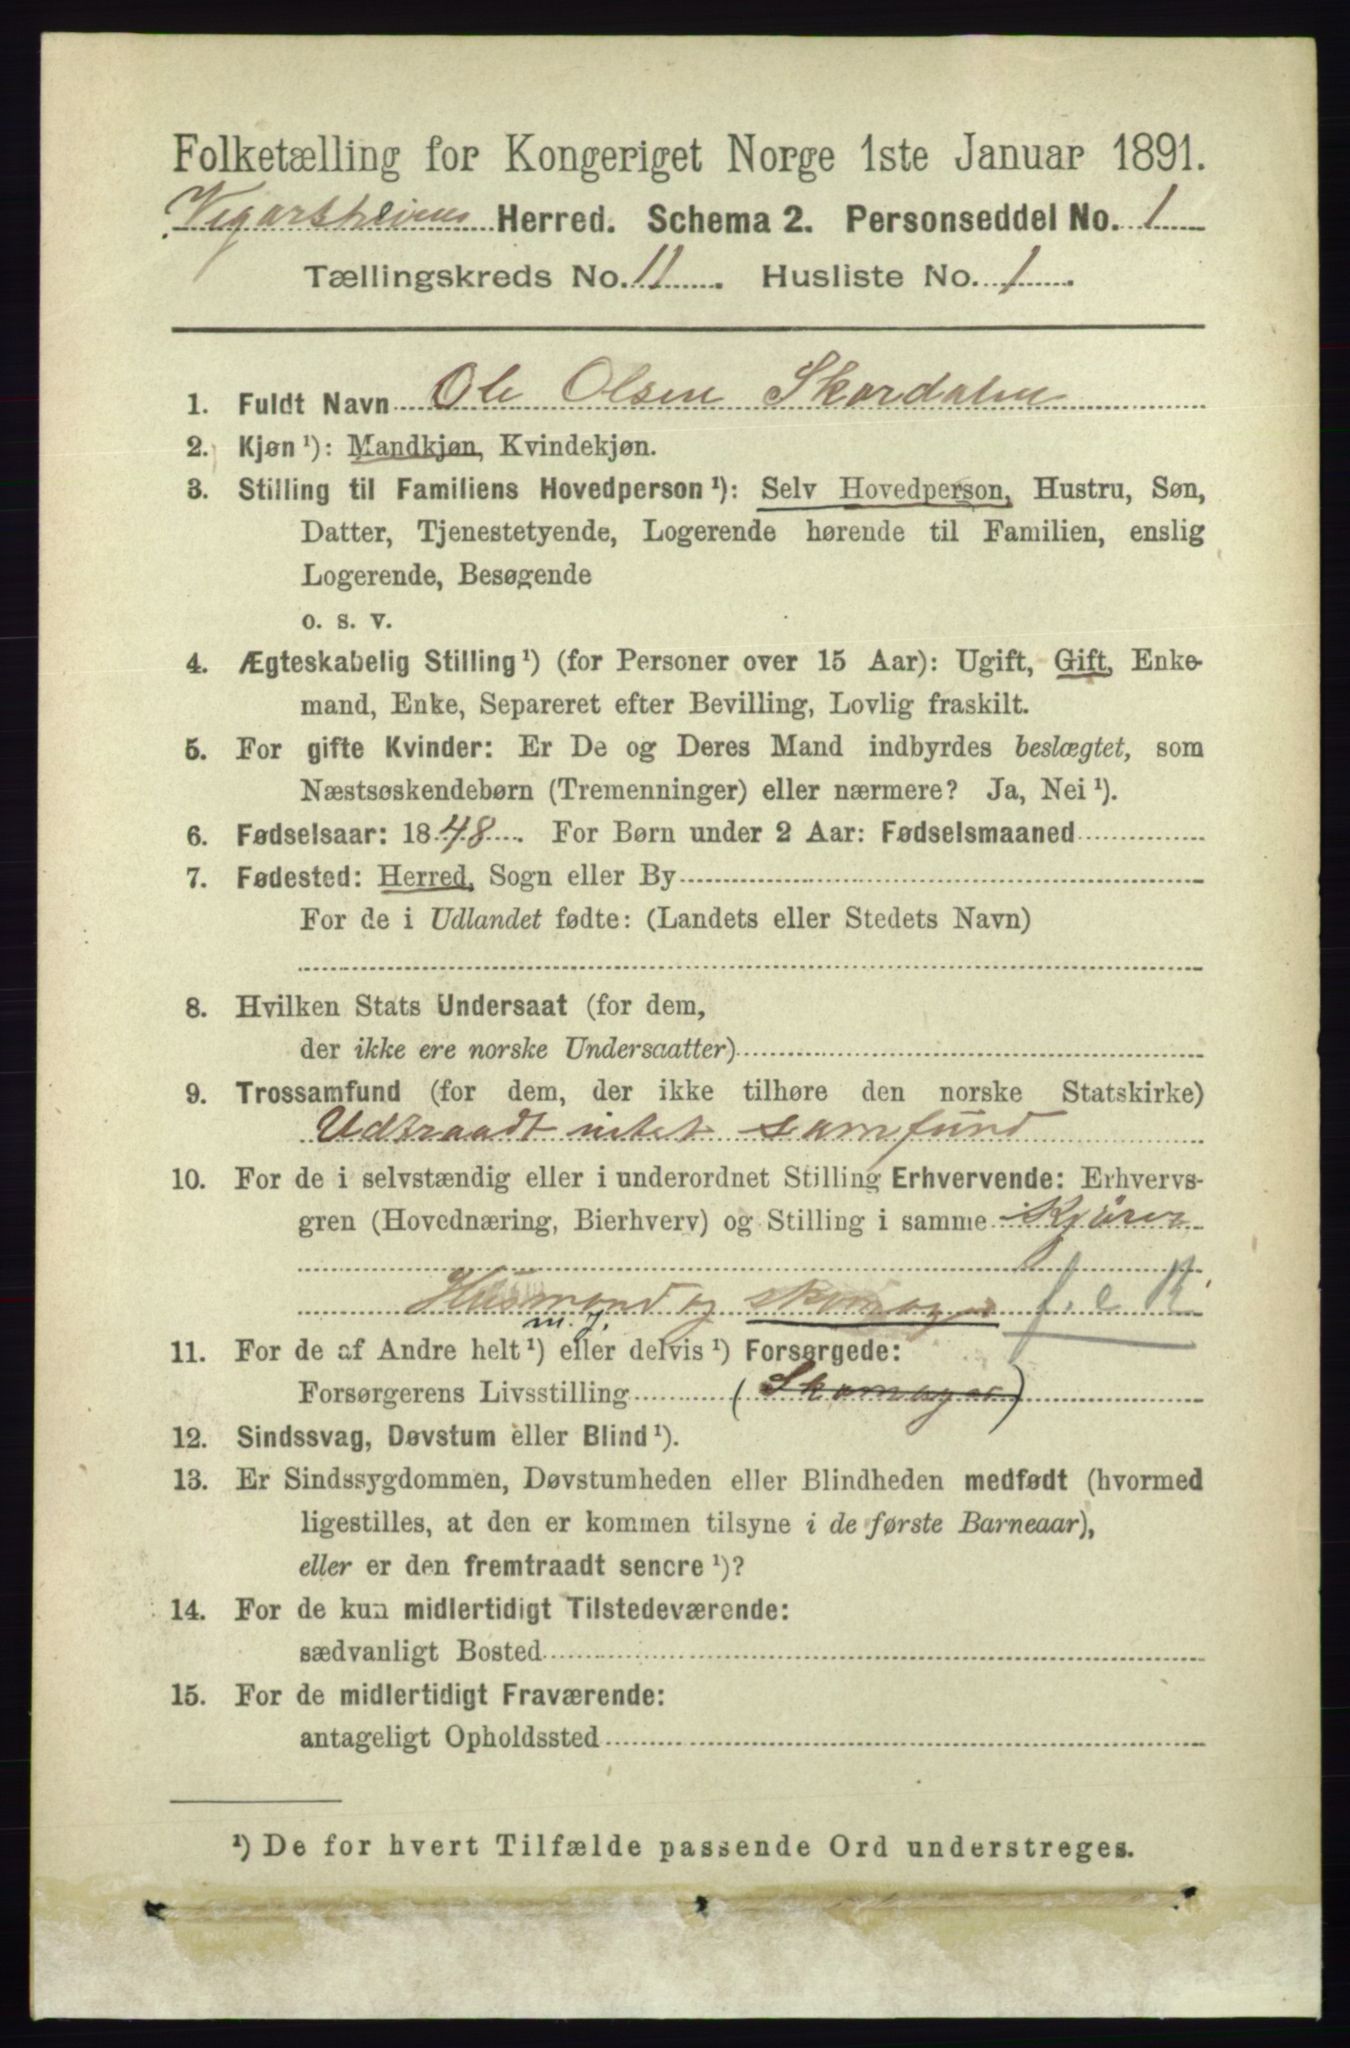 Folketælling for Kongeriget Norge 1ste Januar 1891.
Vegarsheiens Herred. Schema 2. Personseddel No. 1
Tællingskreds No. 11. Husliste No. 1.
1. Fuldt Navn Ole Olsen Skardalen
2. Kjøn ¹): Mandkjøn, Kvindekjøn.
3. Stilling til Familiens Hovedperson ¹): Selv Hovedperson, Hustru, Søn,
Datter, Tjenestetyende, Logerende hørende til Familien, enslig
Logerende, Besøgende
o. s. v.
4. Ægteskabelig Stilling ¹) (for Personer over 15 Aar): Ugift, Gift, Enke-
mand, Enke, Separeret efter Bevilling, Lovlig fraskilt.
5. For gifte Kvinder: Er De og Deres Mand indbyrdes beslægtet, som
Næstsøskendebørn (Tremenninger) eller nærmere? Ja, Nei ¹).
6. Fødselsaar: 1848. For Børn under 2 Aar: Fødselsmaaned
7. Fødested: Herred, Sogn eller By
For de i Udlandet fødte: (Landets eller Stedets Navn)
8. Hvilken Stats Undersaat (for dem,
der ikke ere norske Undersaatter)
9. Trossamfund (for dem, der ikke tilhøre den norske Statskirke)
Udtraadt intet samfund
10. For de i selvstændig eller i underordnet Stilling Erhvervende: Erhvervs-
gren (Hovednæring, Bierhverv) og Stilling i samme Kjører
Husmand og skomager f. e. R.
m. j.
11. For de af Andre helt ¹) eller delvis ¹) Forsørgede:
Forsørgerens Livsstilling (Skomager)
12. Sindssvag, Døvstum eller Blind ¹).
13. Er Sindssygdommen, Døvstumheden eller Blindheden medfødt (hvormed
ligestilles, at den er kommen tilsyne i de første Barneaar),
eller er den fremtraadt senere ¹)?
14. For de kun midlertidigt Tilstedeværende:
sædvanligt Bosted
15. For de midlertidigt Fraværende:
antageligt Opholdssted
¹) De for hvert Tilfælde passende Ord understreges.